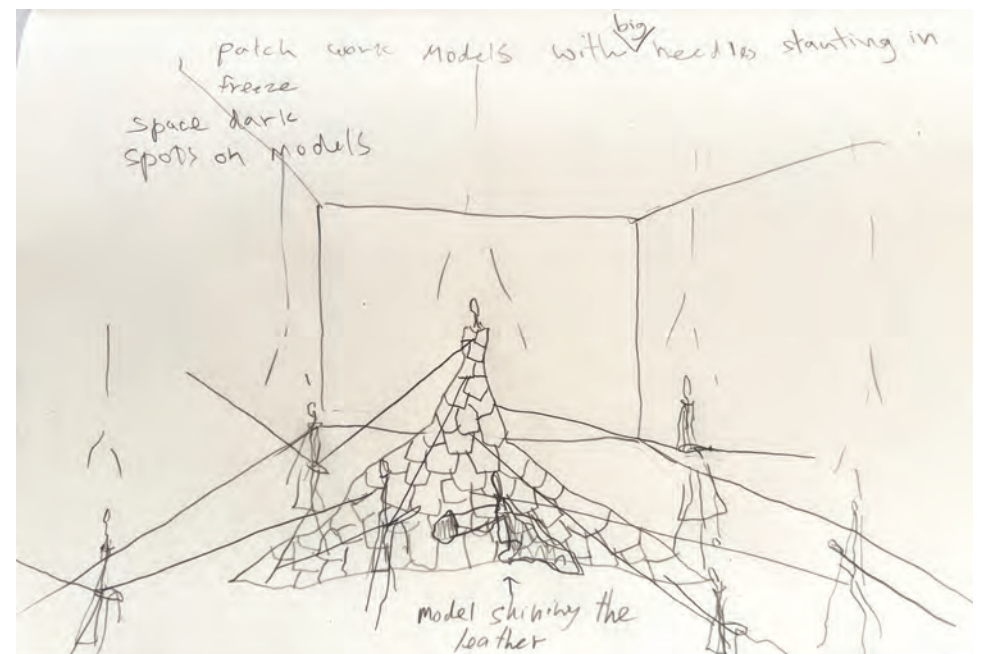 patch work models with big needles stanting in
freeze
space dark
spots on models
model shining the
leather